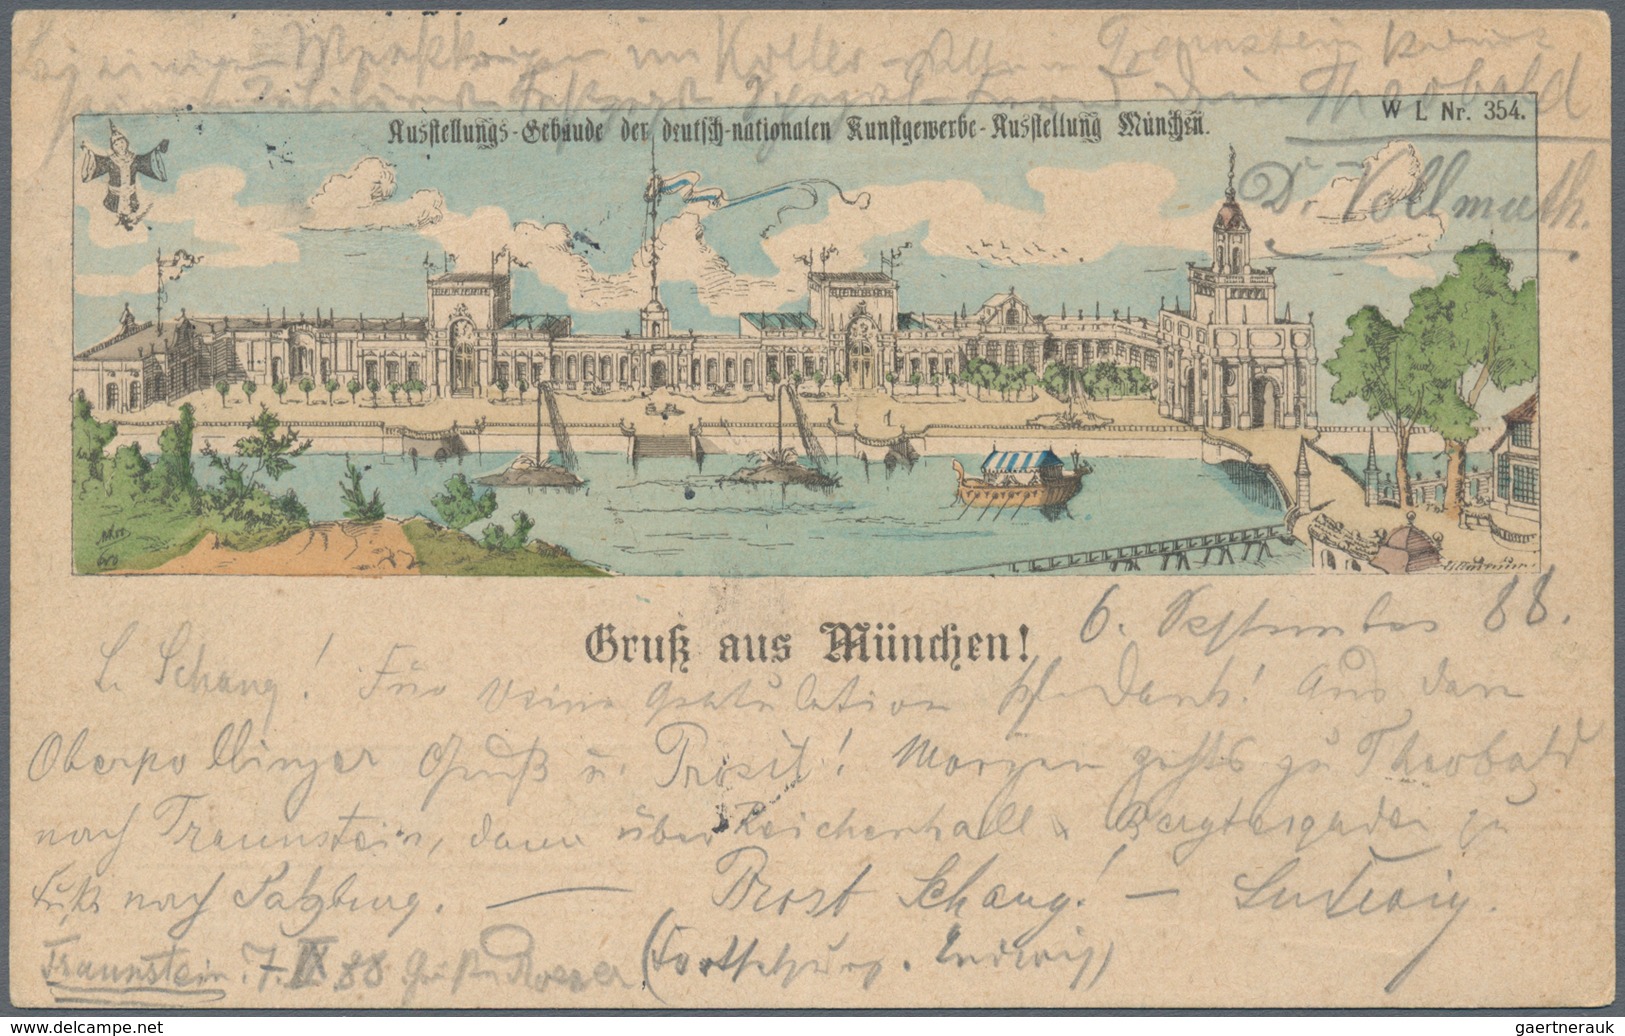 im Keller
Traunstein
Theobald
W L Nr. 354.
Ausstellungs-Gebäude der deutsch-nationalen Kunstgewerbe-Ausstellung München.
Dr. Vollmuth.
Gruß aus München!
6. September 88.
L. Schang! Für Deine Gratulation Dank! Aus dem
Oberpollinger Gruß u. Prosit! Morgen gehts zu Theobald
nach Traunstein, dann über Reichenhall Bergtesgaden zu
Fuß nach Salzburg. — Prost Schang! — Ludwig.
Traunstein. 7. IX 88 (Fortsetzung. Ludwig)
gaertnerauk | delcampe.net